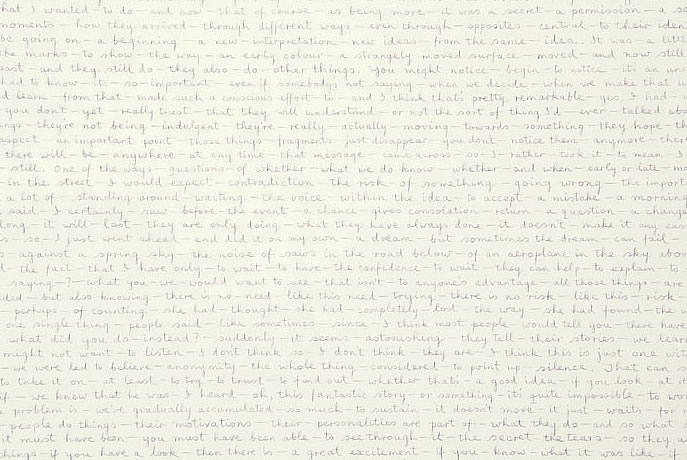 hat I wanted – to do – and now – that of course – as being more – it was a secret – a permission – a so
moments – how they arrived – through different ways – even through – opposites – central – to their iden
be going on – a beginning – a new – interpretation – new ideas – from the same – idea. It was – a littl
the marks – to show – the way – an early colour – a strangely moved surface – moved – and now still
past – and they still do – they also – do – other things. You might notice – begin – to notice – it's an un
had to know – it's – so – important – even if somebody's not saying – when we decide – when we make that u
d learn – from that – made such a conscious effort – to – and I think that's pretty remarkable – yes. I had –
you don't – yet – really trust – that they will understand – or not the sort of thing I'd – ever – talked abo
ngs – they're not being – indulgent they're – really – actually – moving – towards – something – they hope – th
aspect – an important point – those things – fragments just disappear – you don't notice them anymore – ther
there will – be – anywhere – at any time – that message – came across – so – I – rather took it – to mean I
– still. One of the ways – questions – of whether – what we do know – whether – and when – early or late – mo
– in the street – I would expect – contradiction – the risk of something – going wrong – the import
a lot of – standing around – waiting – the voice – within the idea – to accept – a mistake – a morning
said – I certainly – saw – before – the event – a chance – gives consolation – return – a question – a change
long – it will – last – they are only – doing – what they – have always – done – it – doesn't – make it any eas
s – so – I just – went ahead – and did it – on my own – a dream – but – sometimes – the dream – can – fail –
– against – a spring – sky – the noise of – saws – in the road below – of – an aeroplane – in the sky abov
d – the fact – that I have only – to wait – to have – the confidence – to wait – they can help – to explain – to
saying – ? – what you – we – would want – to see – that isn't – to anyone's – advantage – all those things – are
ded – but also – knowing – there is – no – need – like this – need – trying – there is – no risk – like this – risk
– perhaps – of counting – she had – thought – she had – completely – lost – the way – she had – found – the w
one single thing – people said – like – sometimes – since – I think – most people – would tell you – there have
what did you – do – instead? – suddenly – it seems – astonishing – they tell – their – stories – we lear
might not want – to listen – I don't think so – I – don't think – they are – I think – this is just one – wit
– we were – led to – believe – anonymity – the whole – thing – considered – to point up – silence. That can s
to take it on – at least – to try – to trust – to find out – whether that's – a good idea – if you – look at it
if – we knew that – he was – I heard – oh, this – fantastic – story – or something – it's quite – impossible – to wor
a problem – is – we've – gradually – accumulated – so – much – to – sustain – it – doesn't – move – it – just – waits – for –
– people do – things – their motivations – their – personalities – are part of – what they – do – and so what
it must have been – you must have been – able – to see – through – it – the – secret – the tears – so – they a
things – if you have – a look – then there is – a great excitement – if you – know – what it was – like – if